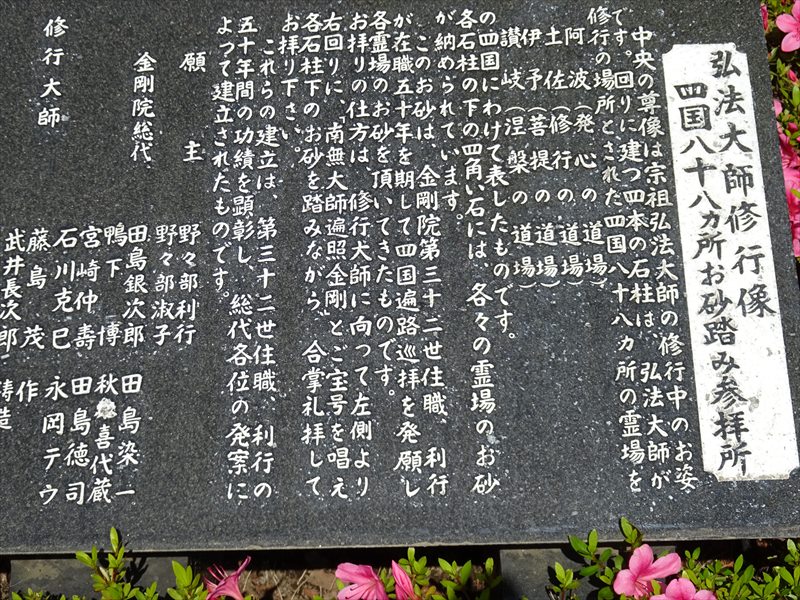 弘法大師修行像
四国八十八カ所お砂踏み参拝所
中央の尊像は宗祖弘法大師の修行中のお姿
です。回りに建つ四本の石柱は、弘法大師が
修行の場所とされた四国八十八カ所の霊場を
阿波（発心の道場）
土佐（修行の道場）
伊予（菩提の道場）
讃岐（涅槃の道場）
の四国にわけて表したものです。
各石柱の下の四角い石には、各々の霊場のお砂
が納められています。
このお砂は、金剛院第三十二世住職　利行
が在職五十年を期して四国遍路巡拝を発願し
各霊場のお砂を頂いてきたものです。
お拝りの仕方は　修行大師に向って左側より
右回りに、「南無大師遍照金剛」とご宝号を唱え
各石柱下のお砂を踏みながら、合掌礼拝して
お拝り下さい。
これらの建立は、第三十二世住職、利行の
五十年間の功績を顕彰し、総代各位の発案に
よって建立されたものです。
願主　野々部利行
野々部淑子
金剛院総代　田島銀次郎　田島染一
鴨下　博　秋　喜代蔵
宮崎仲壽　田島徳司
石川克巳　永岡テウ
修行大師　藤島　茂　作
武井長次郎　鋳造